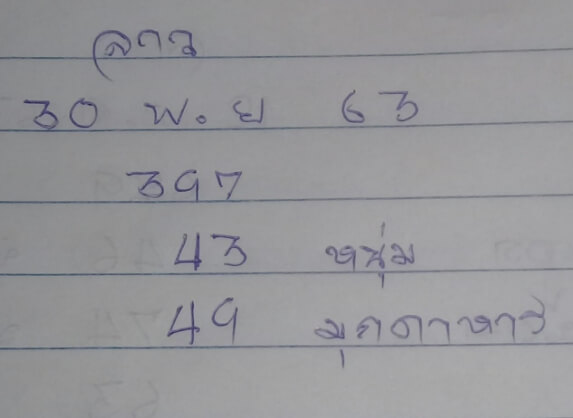 ลาว
30 พ.ย 63
397
43 หนุ่ม
49 มุกดาหาร